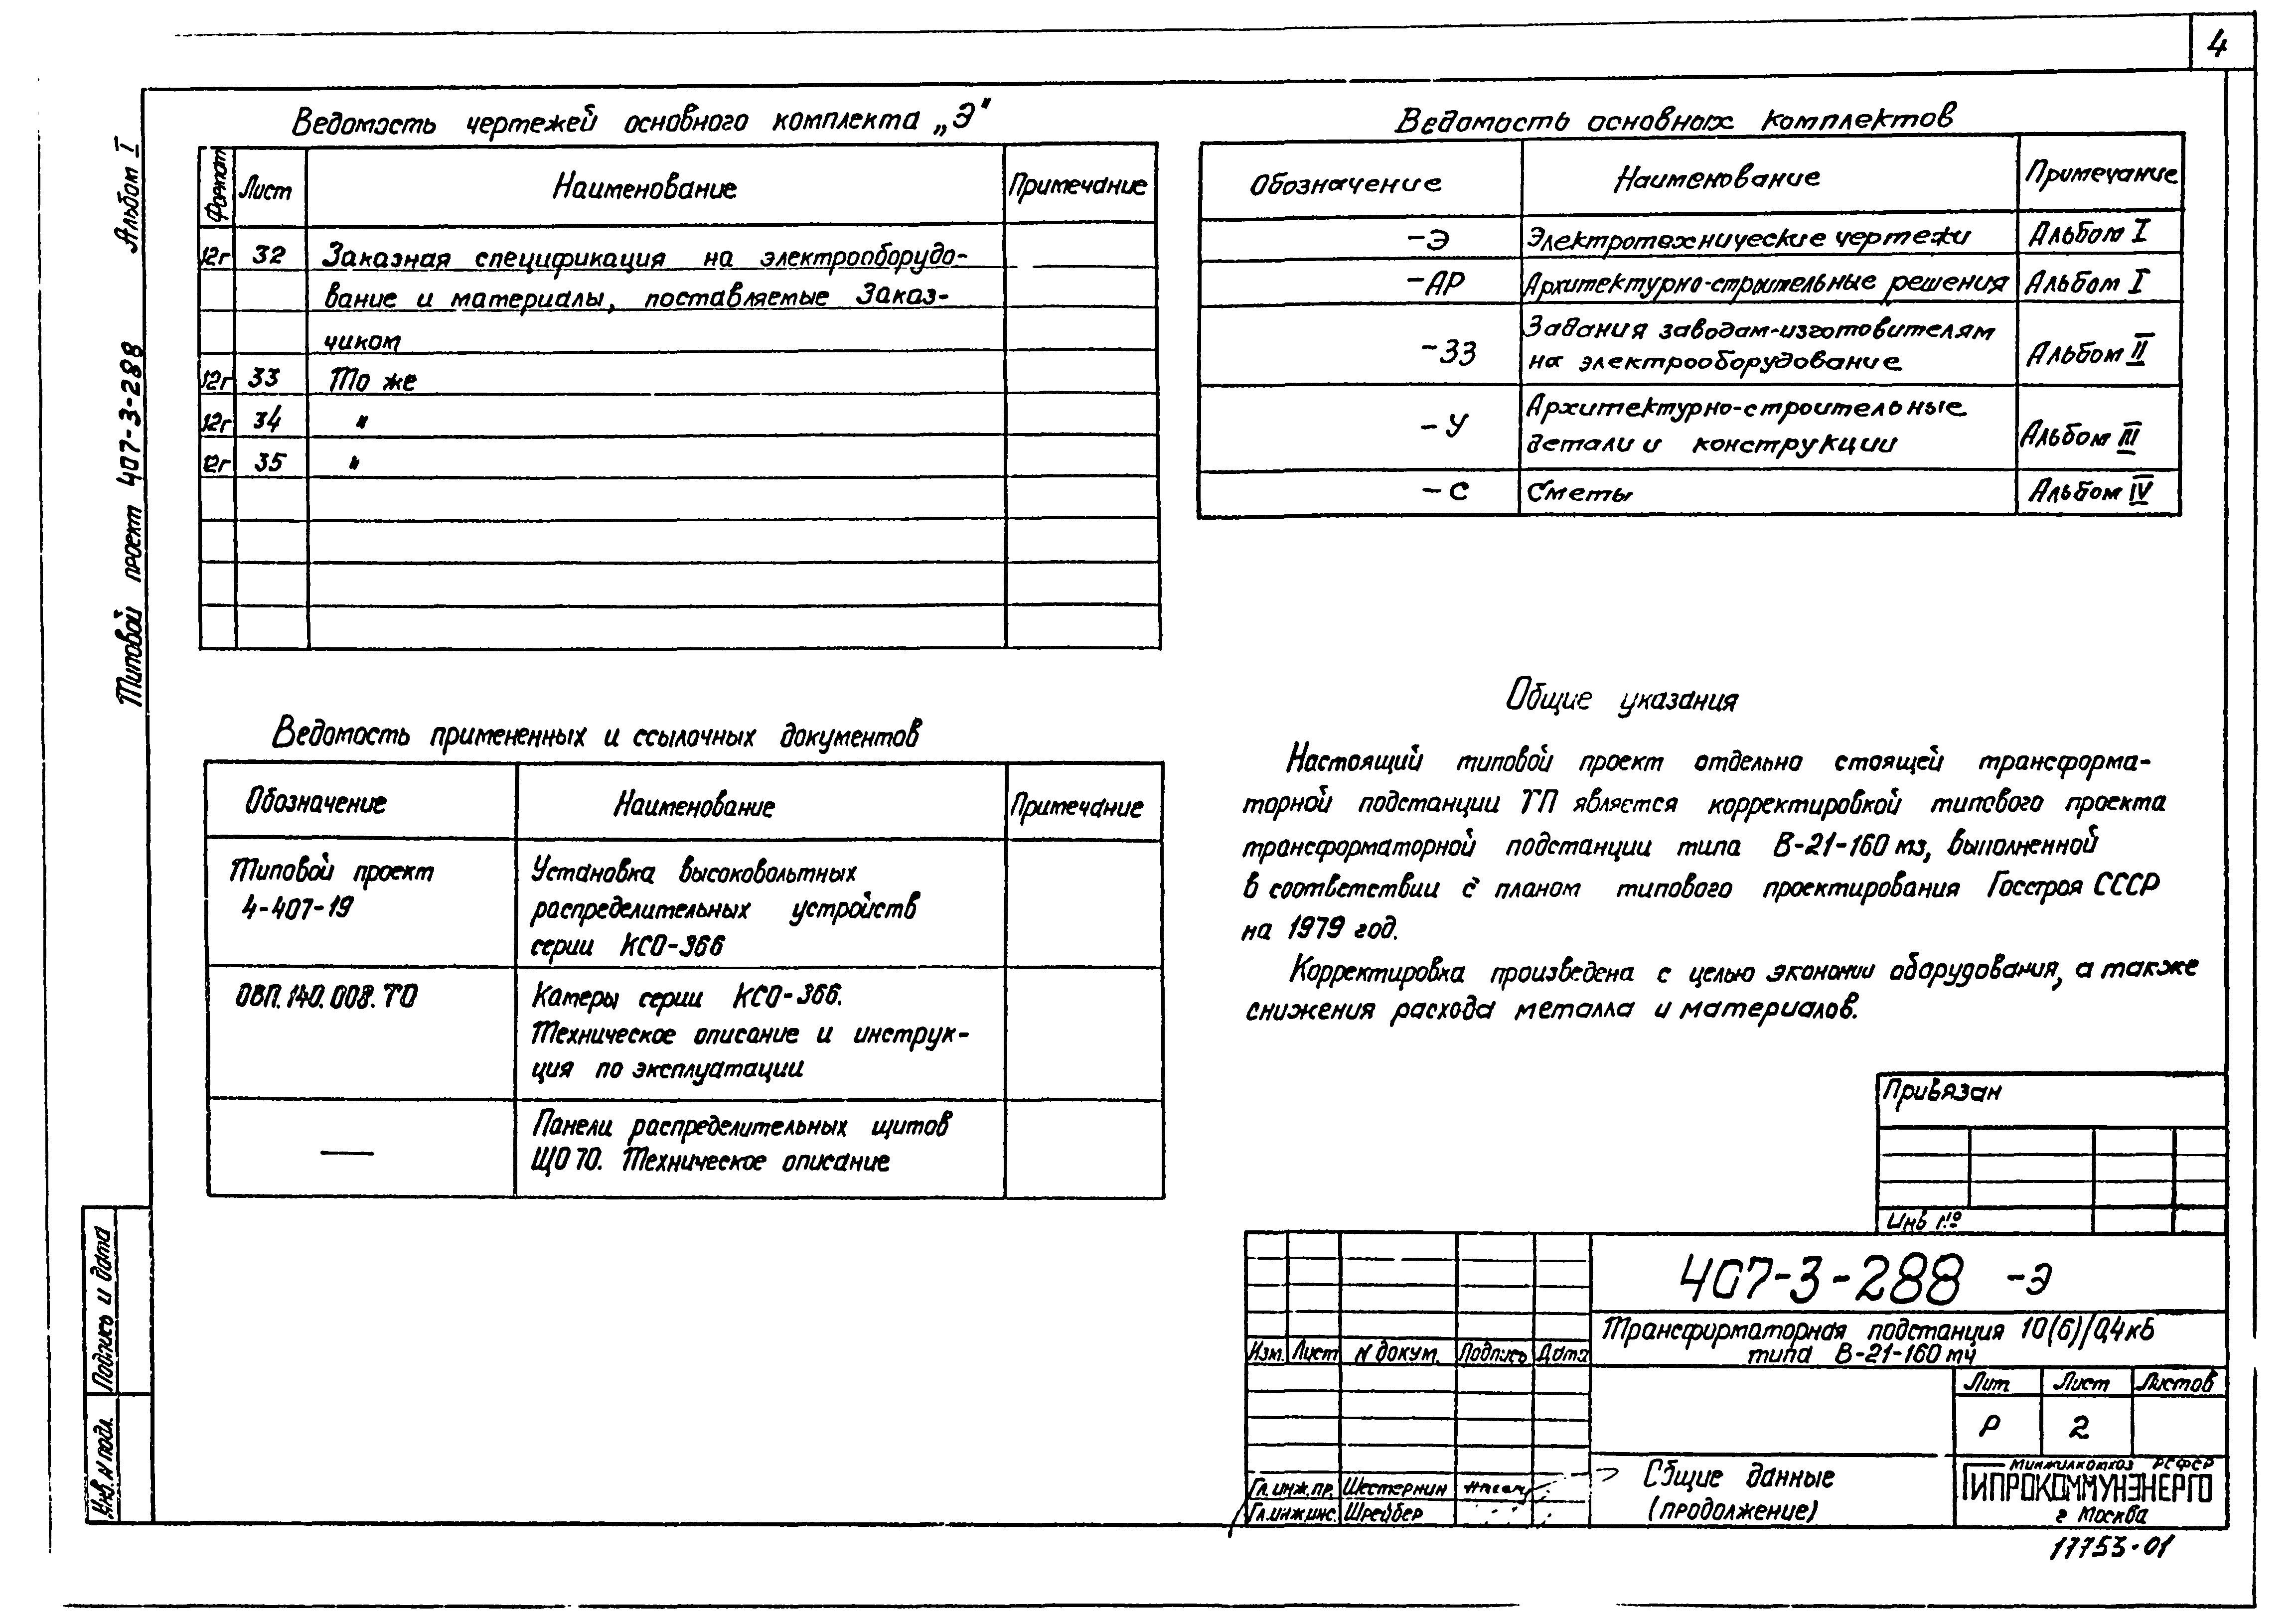 4
Альбом I
Типовой проект 407-3-288
Ведомость чертежей основного комплекта „Э“
Формат Лист Наименование Примечание
12г 32 Заказная спецификация на электрооборудо-
вание и материалы, поставляемые Заказ-
чиком
12г 33 То же
12г 34 "
12г 35 "
Ведомость примененных и ссылочных документов
Обозначение Наименование Примечание
Типовой проект
4-407-19
Установка высоковольтных
распределительных устройств
серии КСО-366
ОВП.140.008.ТО
Камеры серии КСО-366.
Техническое описание и инструк-
ция по эксплуатации
—
Панели распределительных щитов
ЩО 70. Техническое описание
Ведомость основных комплектов
Обозначение Наименование Примечание
-Э Электротехнические чертежи Альбом I
-АР Архитектурно-строительные решения Альбом I
-ЗЗ Задания заводам-изготовителям
на электрооборудование Альбом II
-У Архитектурно-строительные
детали и конструкции Альбом III
-С Сметы Альбом IV
Общие указания
Настоящий типовой проект отдельно стоящей трансформа-
торной подстанции ТП является корректировкой типового проекта
трансформаторной подстанции типа В-21-160 м3, выполненной
в соответствии с планом типового проектирования Госстроя СССР
на 1979 год.
Корректировка произведена с целью экономии оборудования, а также
снижения расхода металла и материалов.
Привязан
Инв №
407-3-288 -Э
Трансформаторная подстанция 10(6)/0,4кВ
типа В-21-160 м4
Изм. Лист N докум. Подпись Дата
Лит Лист Листов
Р 2
Гл.инж.пр. Шестернин
Гл.инж.инс. Шрейбер
Общие данные
(продолжение)
Минжилкомхоз РСФСР
ГИПРОКОММУНЭНЕРГО
г Москва
17753-01
Подпись и дата
Инв. N подл.